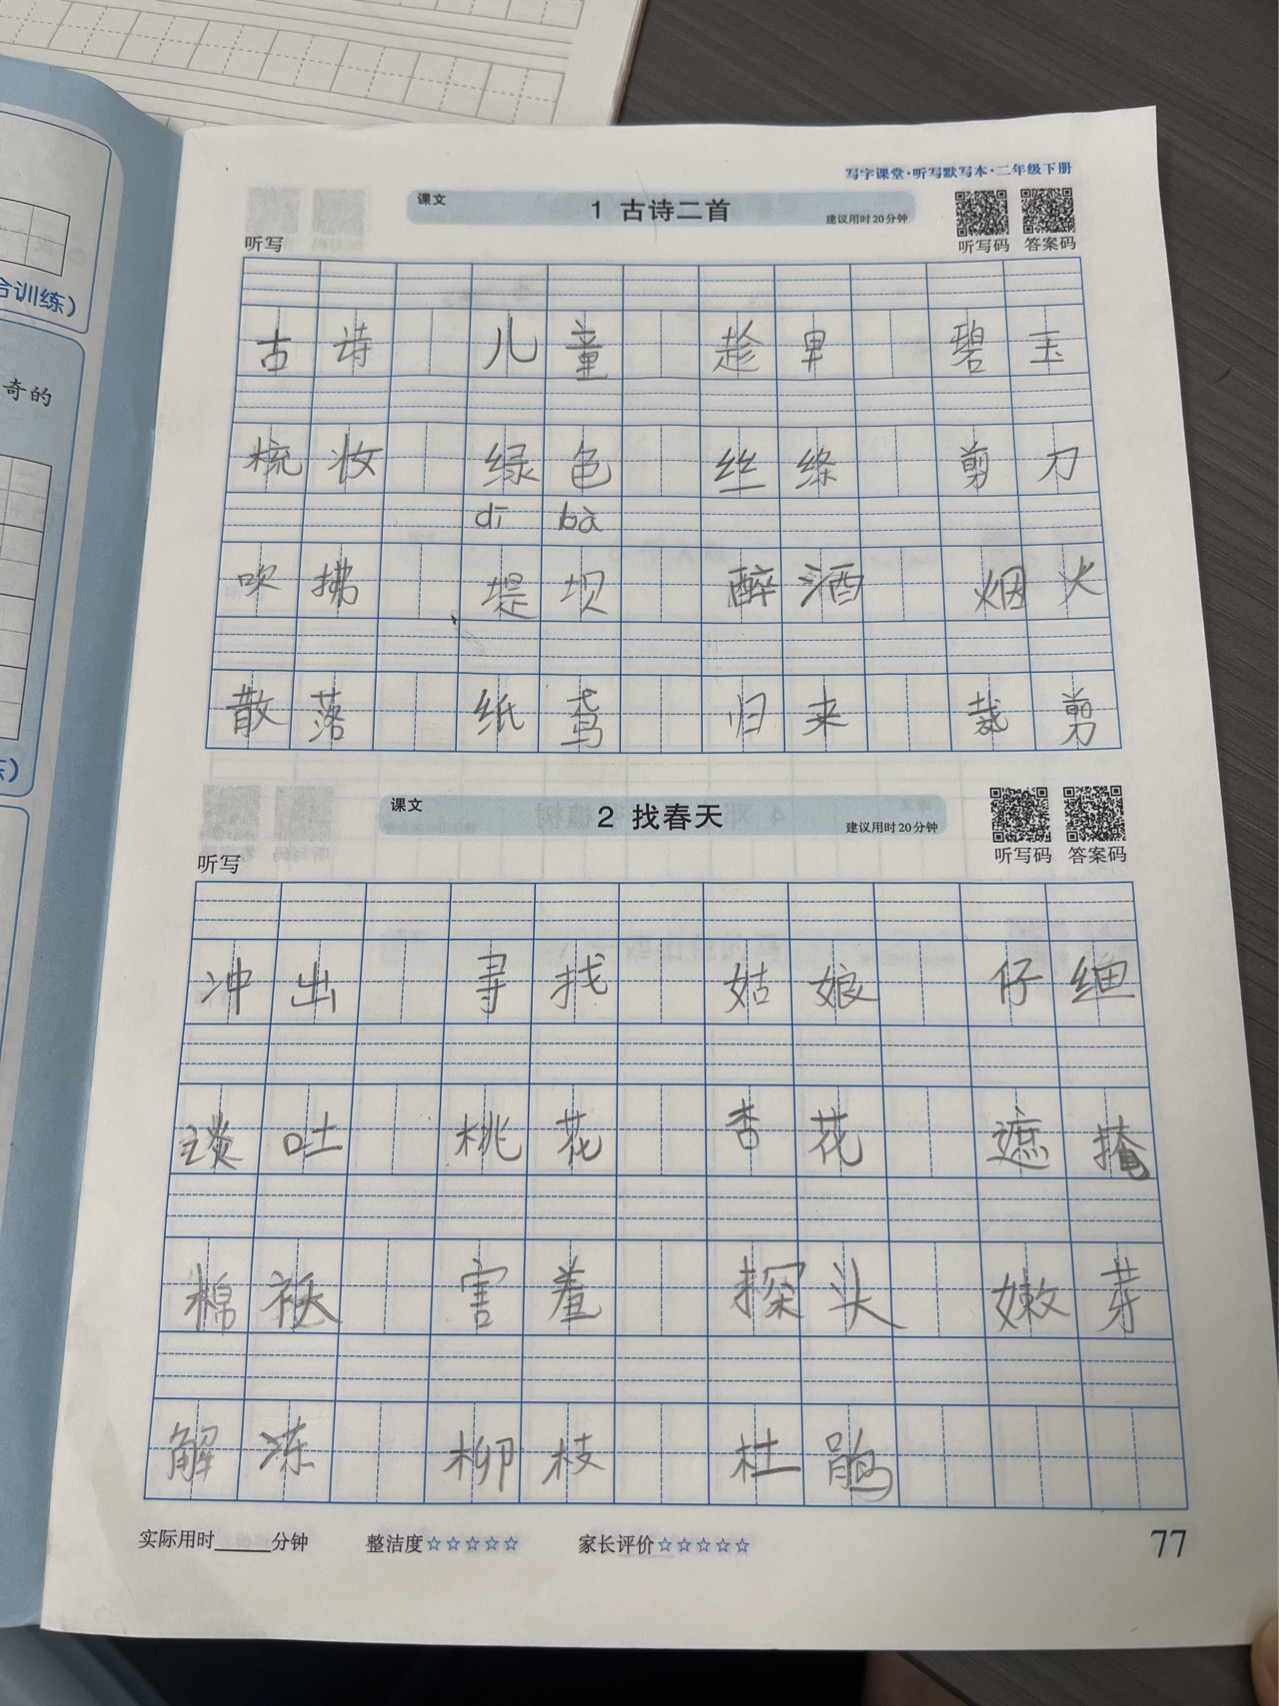 合训练）
奇的
写字课堂·听写默写本·二年级下册
课文
1 古诗二首
建议用时20分钟
听写
听写码 答案码
古诗 儿童 趁早 碧玉
梳妆 绿色 丝绦 剪刀
dī bà
吹拂 堤坝 醉酒 烟火
散落 纸鸢 归来 裁剪
课文
2 找春天
建议用时20分钟
听写
听写码 答案码
冲出 寻找 姑娘 仔细
吐 桃花 杏花 遮掩
棉袄 害羞 探头 嫩芽
解冻 柳枝 杜鹃
实际用时______分钟 整洁度☆☆☆☆☆ 家长评价☆☆☆☆☆
77